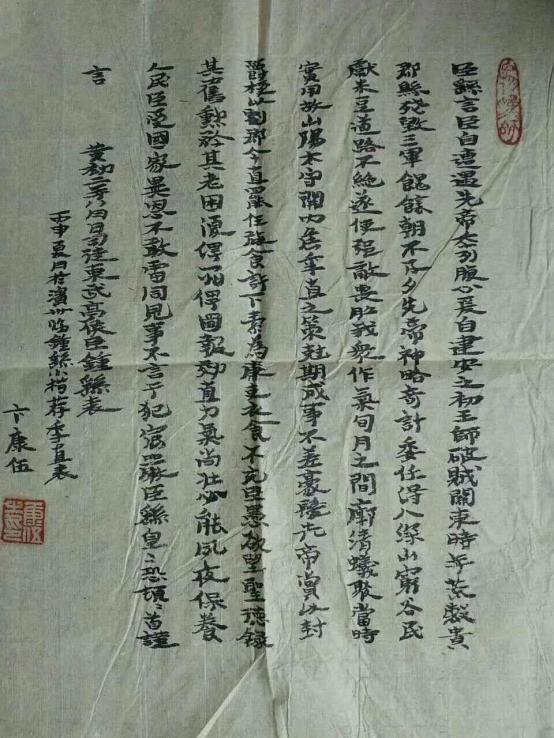 臣繇言臣自遭遇先帝忝列腹心爰自建安之初王師破賊關東時年荒穀貴
郡縣殘毀三軍餽饟朝不及夕先帝神略奇計委任得人深山窮谷民
獻米豆道路不絕遂使強敵喪膽我衆作氣旬月之間廓清蟻聚當時
實用故山陽太守關內侯季直之策尅期成事不差豪髮先帝賞以封
爵授以劇郡今直罷任旅食許下素為廉吏衣食不充臣愚欲望聖德錄
其舊勳矜其老困復俾一州俾圖報効直力氣尚壯必能夙夜保養
人民臣受國家異恩不敢雷同見事不言干犯宸嚴臣繇皇〻恐頓〻首謹
言
黃初二年八月日司徒東武亭侯臣鍾繇表
丙申夏月於濱州臨鍾繇小楷荐季直表
卞康伍